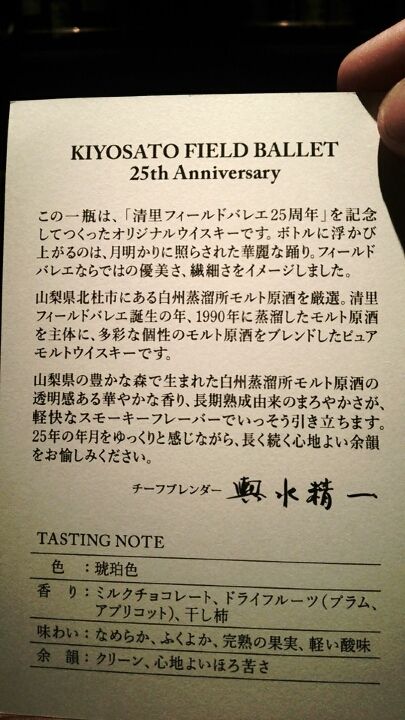 KIYOSATO FIELD BALLET
25th Anniversary
この一瓶は、「清里フィールドバレエ25周年」を記念
してつくったオリジナルウイスキーです。ボトルに浮かび
上がるのは、月明かりに照らされた華麗な踊り。フィールド
バレエならではの優美さ、繊細さをイメージしました。
山梨県北杜市にある白州蒸溜所モルト原酒を厳選。清里
フィールドバレエ誕生の年、1990年に蒸溜したモルト原酒
を主体に、多彩な個性のモルト原酒をブレンドしたピュア
モルトウイスキーです。
山梨県の豊かな森で生まれた白州蒸溜所モルト原酒の
透明感ある華やかな香り、長期熟成由来のまろやかさが、
軽快なスモーキーフレーバーでいっそう引き立ちます。
25年の年月をゆっくりと感じながら、長く続く心地よい余韻
をお愉しみください。
チーフブレンダー 輿水精一
TASTING NOTE
色：琥珀色
香り：ミルクチョコレート、ドライフルーツ（プラム、
アプリコット）、干し柿
味わい：なめらか、ふくよか、完熟の果実、軽い酸味
余韻：クリーン、心地よいほろ苦さ